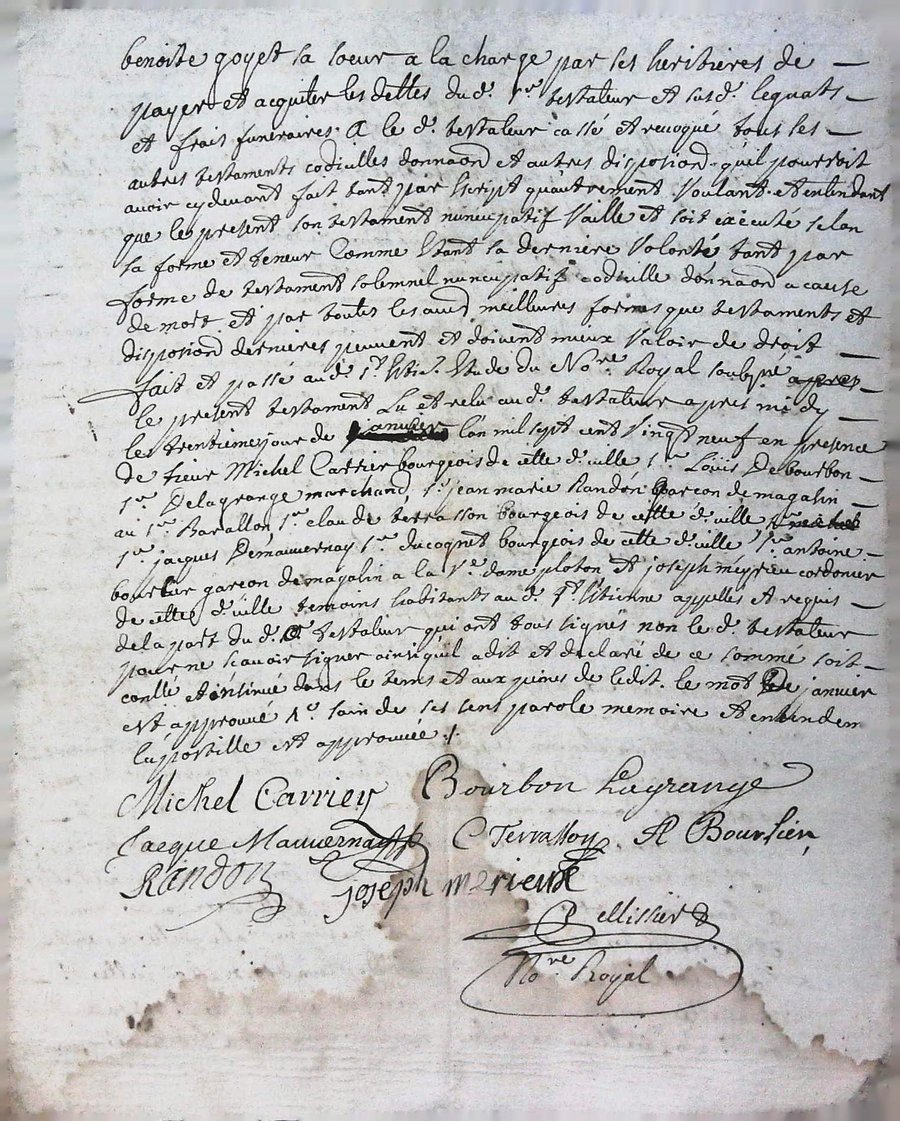 benoite goyet sa soeur a la charge par ses heritieres de
payer et acquiter les dettes dud. sr. testateur et susd. legats
et frais funeraires. A le d. testateur cassé et revoqué tous les
autres testaments codicilles donnaõn et autres disposiõns qu'il pourroit
avoir cy devant fait tant par Escript qu'autrement Voulant et entendant
que le present son testament nuncupatif Vaille et soit exécuté selon
sa forme et teneur Comme Etant sa derniere Volonté tant par
forme de testament solemnel nuncupatif codicille donnaõn a cause
de mort et par toutes les aud. meilleures formes que testaments et
disposiõns dernieres peuvent et doivent mieux Valoir de droit
fait et passé aud. St. Etie. Etude du Nore. Royal soubsné apres
le present testament Lu et relu aud. testateur apres midy
le trentieme jour de janvier l'an mil sept cent Vingt neuf en presence
de sieur Michel Carrier bourgeois de cette d. ville sr. Louis De bourbon
sr. Delagrange marchand, sr. jean marie Randon garçon de magasin
au sr. Barallon sr. claude terrasson bourgeois de cette d. ville
sr. jacques Demauvernay sr. ducoquet bourgeois de cette d. ville sr. antoine
boursier garçon de magasin a la ve. dame ploton et joseph meyrieu cordonier
de cette d. ville temoins habitants aud. St. Etienne appelles et requis
de la part dud. testateur qui ont tous signés non le d. testateur
pour ne scavoir signer ainsi qu'il a dit et declaré de ce sommé soit
conllé et insinué dans le tems et aux peines de ledit. le mot de janvier
est approuvé so. sain de ses sens parole memoire et entendem
l'apostille est approuvée ./.
Michel Carrier Bourbon Lagrange
Jacque Mauvernay C Terrasson A Boursier
RANDON joseph merieux
Pellissier
Nore Royal